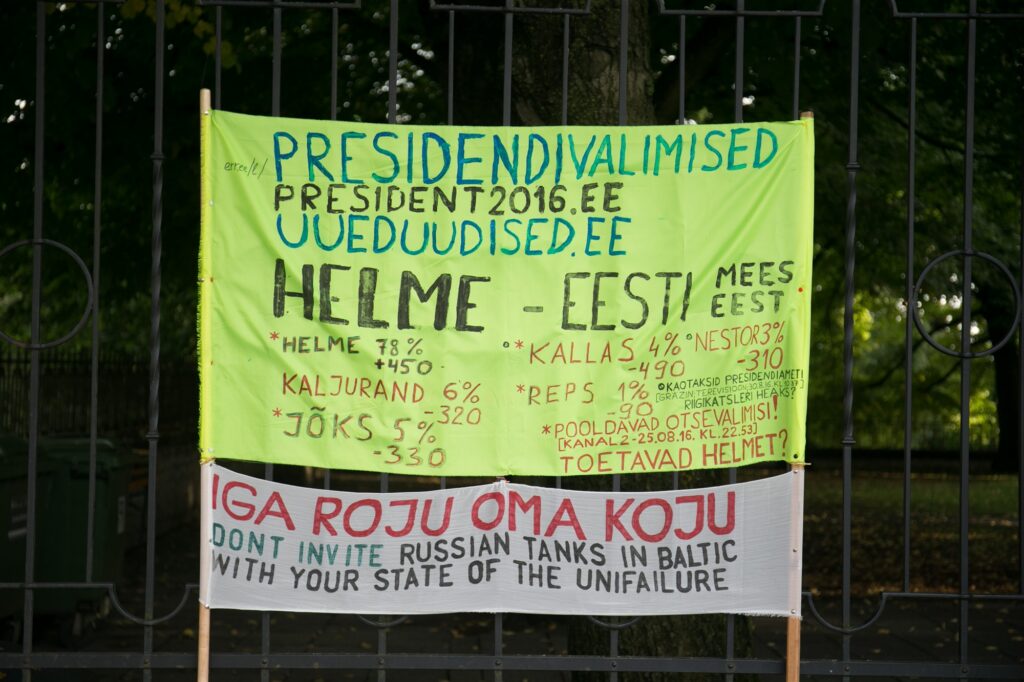 err.ee/l/ PRESIDENDIVALIMISED
PRESIDENT2016.EE
UUEDUUDISED.EE
HELME - EESTI MEES
EEST
*HELME 78%
+450
KALJURAND 6%
-320
*JÕKS 5%
-330
°*KALLAS 4%
-490
*REPS 1%
-90
°NESTOR 3%
-310
°KAOTAKSID PRESIDENDIAMETI
[GRÄZIN: TEREVISIOON; 30.8.16 KL.
RIIGIKATSLERI HEAKS?
*POOLDAVAD OTSEVALIMISI!
[KANAL 2-25.08.16. KL. 22.53]
TOETAVAD HELMET?
IGA ROJU OMA KOJU
DONT INVITE RUSSIAN TANKS IN BALTIC
WITH YOUR STATE OF THE UNIFAILURE